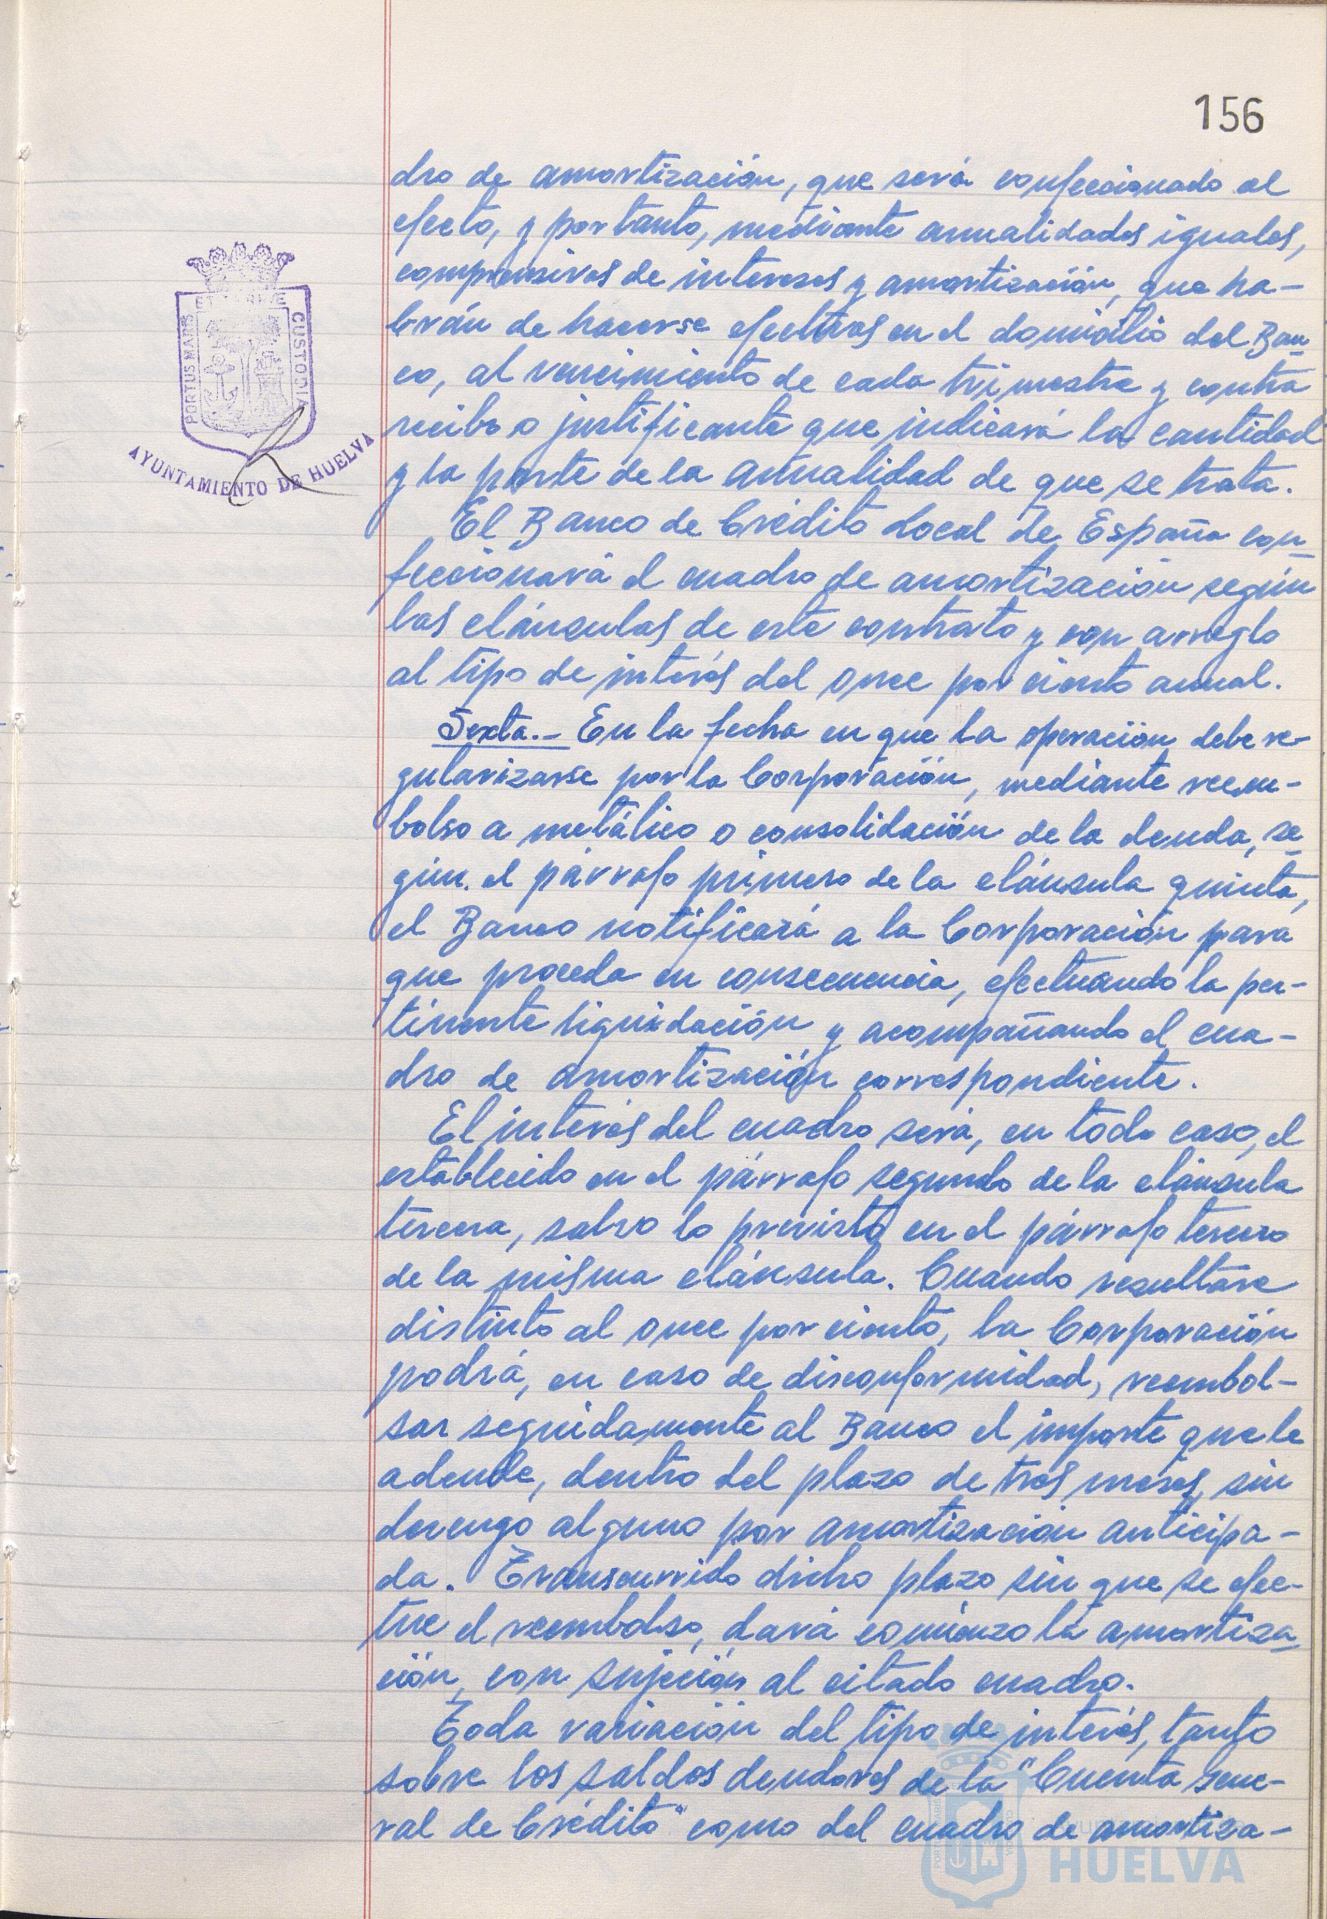 156
dro de amortización, que será confeccionado al
efecto, y por tanto, mediante anualidades iguales,
comprensivas de intereses y amortización, que ha-
brán de hacerse efectivas en el domicilio del Ban-
co, al vencimiento de cada trimestre y contra
recibo o justificante que indicará la cantidad
y la parte de la anualidad de que se trata.
El Banco de Crédito Local de España con-
feccionará el cuadro de amortización según
las cláusulas de este contrato y con arreglo
al tipo de interés del once por ciento anual.
Sexta.- En la fecha en que la operación debe re-
gularizarse por la Corporación, mediante reem-
bolso a metálico o consolidación de la deuda, se-
gún el párrafo primero de la cláusula quinta,
el Banco notificará a la Corporación para
que proceda en consecuencia, efectuando la per-
tinente liquidación y acompañando el cua-
dro de amortización correspondiente.
El interés del cuadro será, en todo caso, el
establecido en el párrafo segundo de la cláusula
tercera, salvo lo previsto en el párrafo tercero
de la misma cláusula. Cuando resultare
distinto al once por ciento, la Corporación
podrá, en caso de disconformidad, reembol-
sar seguidamente al Banco el importe que le
adeude, dentro del plazo de tres meses, sin
devengo alguno por amortización anticipa-
da. Transcurrido dicho plazo sin que se efec-
tue el reembolso, dará comienzo la amortiza-
ción, con sujeción al citado cuadro.
Toda variación del tipo de interés, tanto
sobre los saldos deudores de la "Cuenta gene-
ral de Crédito" como del cuadro de amortiza-
PORTUS MARIS
CUSTODIA
AYUNTAMIENTO DE HUELVA
HUELVA